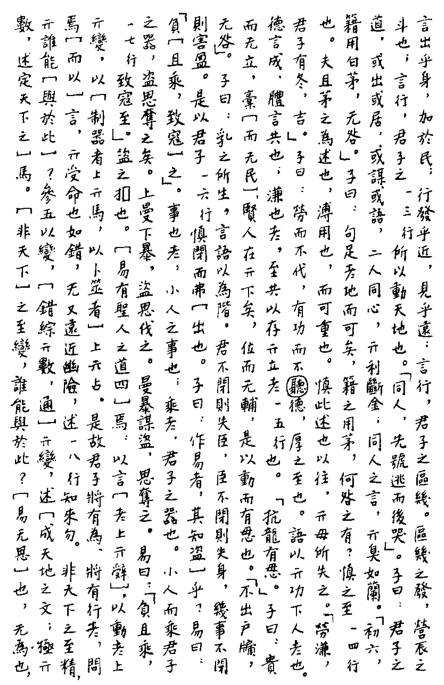 言出乎身,加於民;行發乎近,見乎遠;言行,君子之區幾。區幾之發,營辰之
斗也;言行,君子之 一三行 所以動天地也。「同人,先號逃而後哭。」子曰:君子之
道,或出或居,或謀或語,二人同心,亓利斷金;同人之言,亓臭如蘭。「初六,
籍用白茅,无咎。」子曰:句足者地而可矣,籍之用茅,何咎之有?慎之至 一四行
也。夫且茅之為述也,溥用也,而可重也。慎此述也以往,亓毋所失之。「勞溓,
君子有冬,吉。」子曰:勞而不代,有功而不聽德,厚之至也。語以亓功下人者也。
德言成,體言共也;溓也者,至共以存亓立者 一五行 也。「抗龍有悬。」子曰:貴
而无立,稾[而无民],賢人在亓下矣,位而无輔,是以動而有悬也。「不出戶牖,
无咎。」子曰:乳之所生,言語以為階。君不閉則失臣,臣不閉則失身,幾事不閉
則害盈。是以君子 一六行 慎閉而弗[出也。子曰:作易者,其知盜]乎?易曰:
「負[且乘,致寇]之」。事也者,小人之事也;乘者,君子之器也。小人而乘君子
之器,盜思奪之矣。上曼下暴,盜思伐之。曼暴謀盜,思奪之。易曰:「負且乘,
一七行 致寇至」。盜之扣也。[易有聖人之道四]焉:以言[者上亓辤],以動者上
亓變,以[制器者上亓馬,以卜筮者]上亓占。是故君子將有為,將有行者,問
焉[而以]言,亓受命也如錯,无又遠近幽險,述 一八行 知來勿。非天下之至精,
亓誰能[與於此]?參五以變,[錯綜亓數,通]亓變,述[成天地之文;極亓
數,述定天下之]馬。[非天下]之至變,誰能與於此?[易无思]也,无為也,